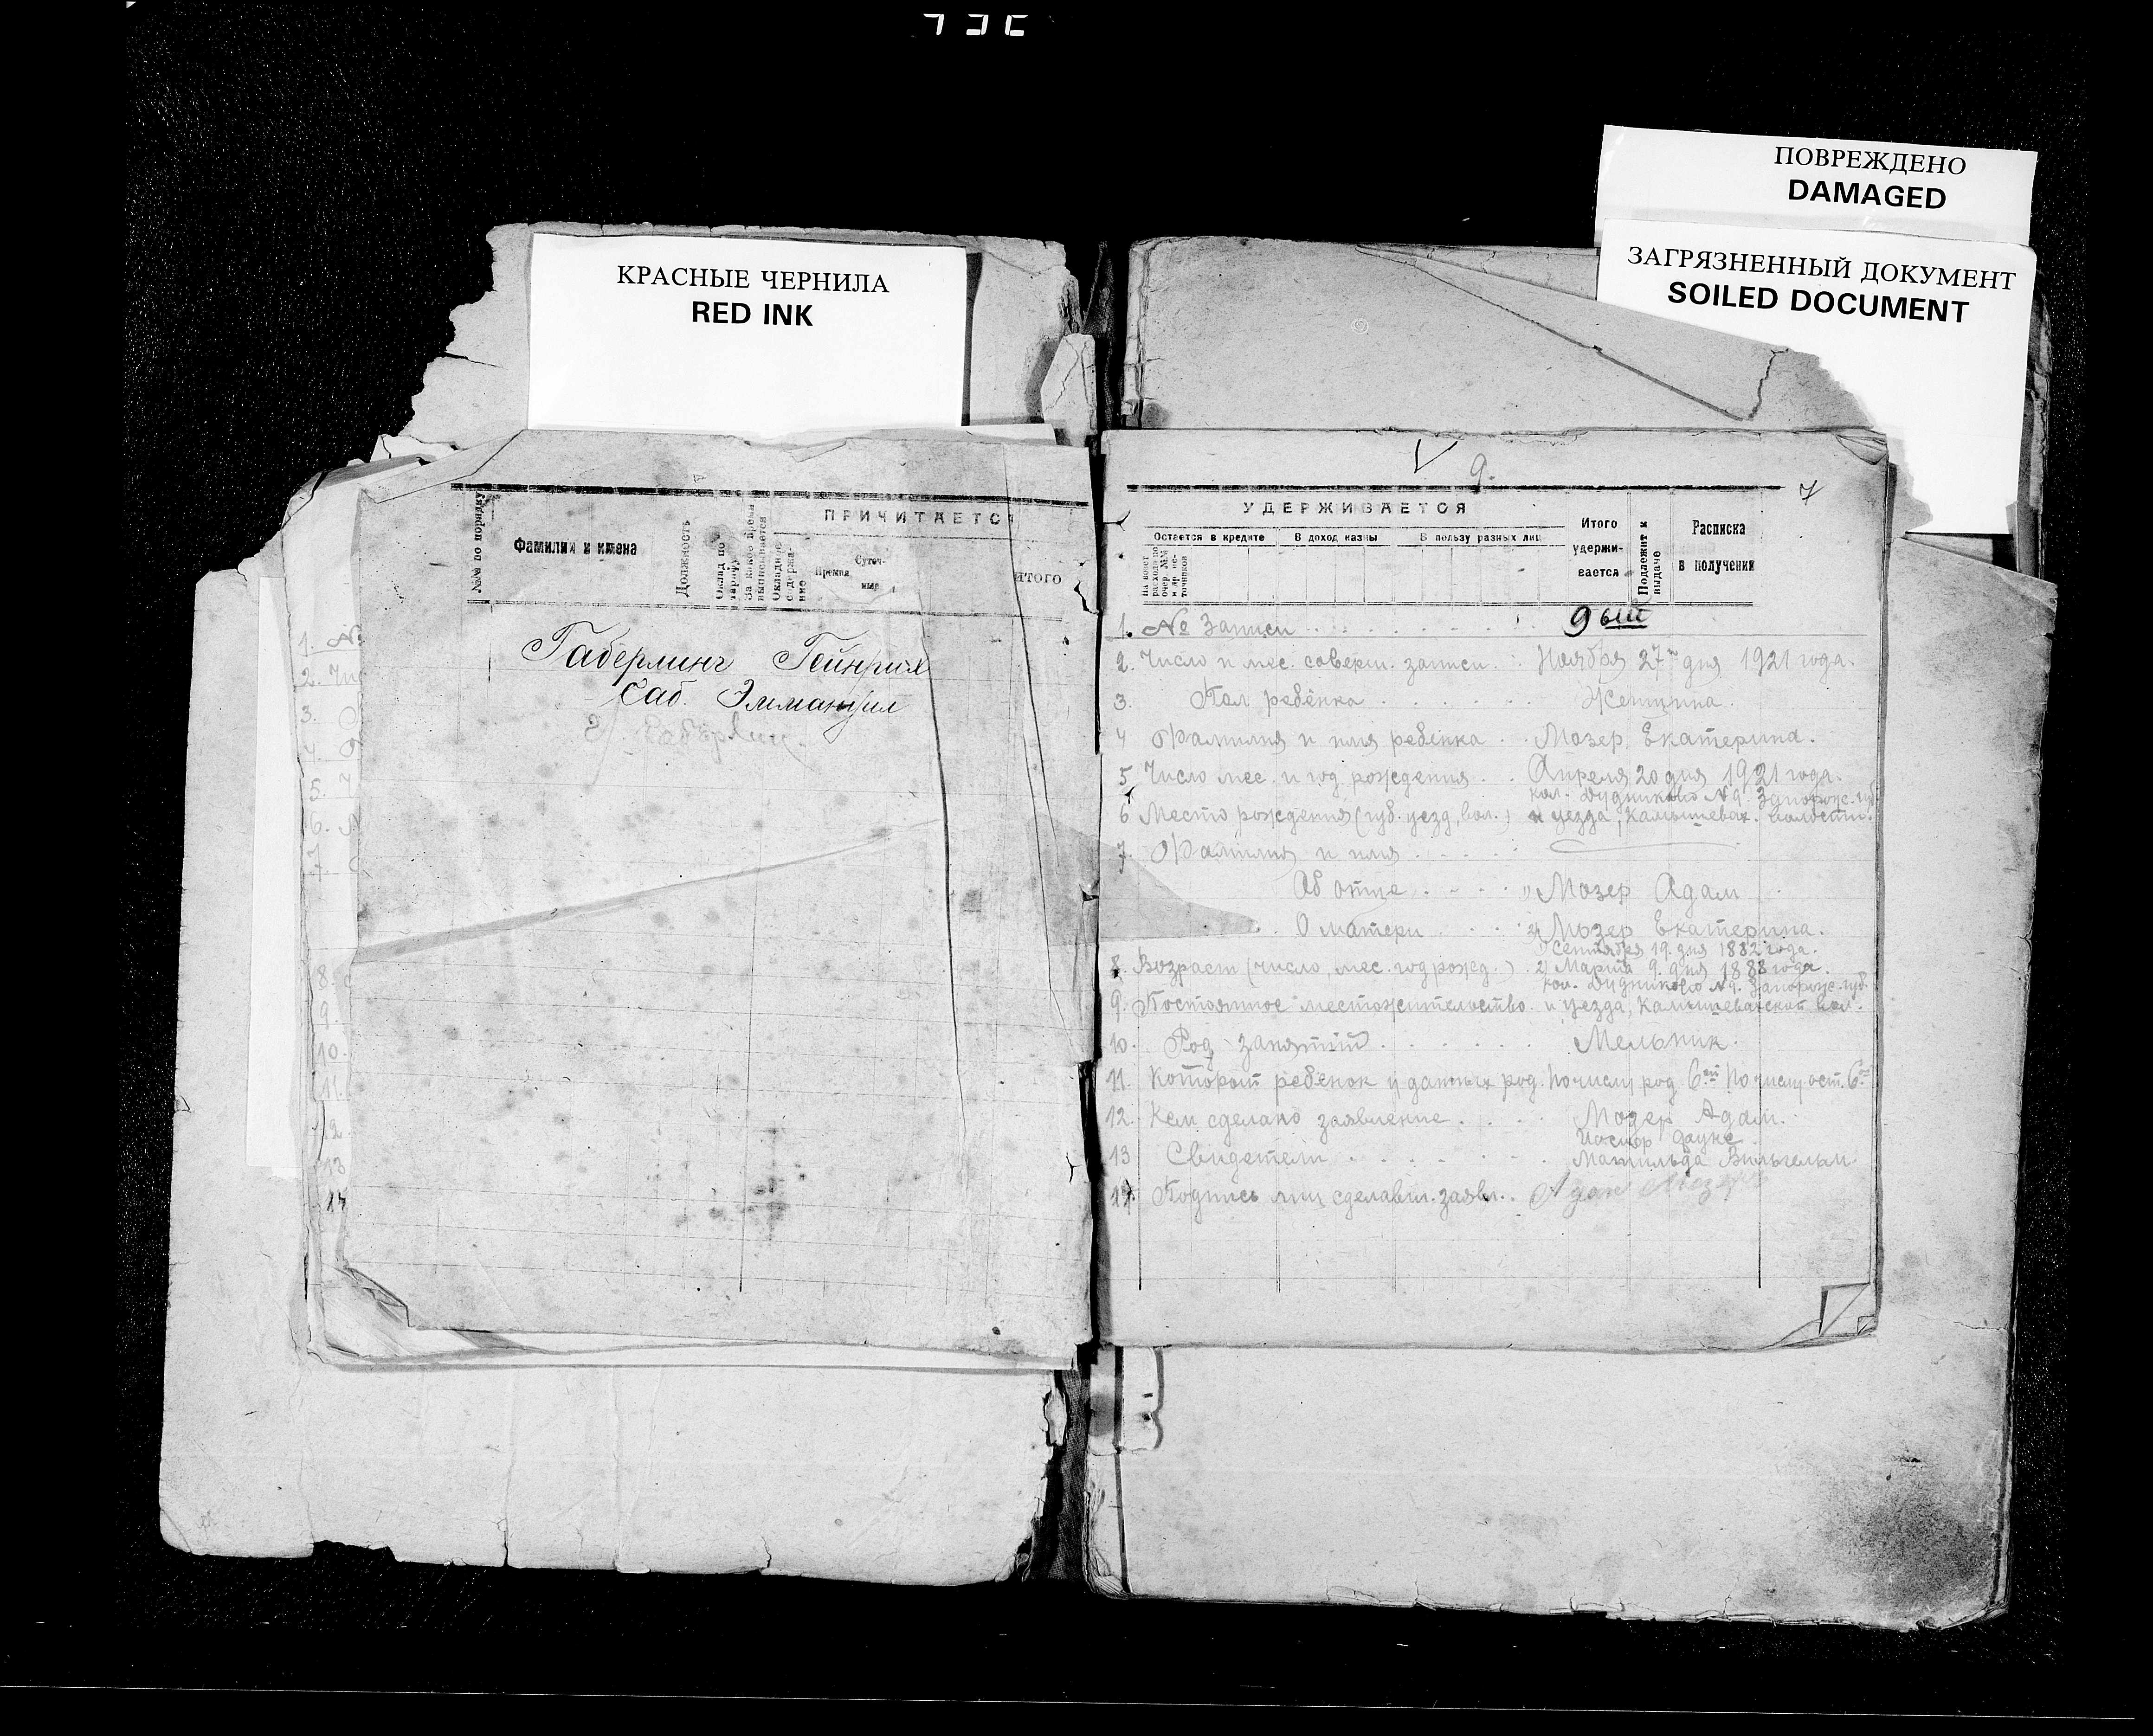 ПОВРЕЖДЕНО
DAMAGED
ЗАГРЯЗНЕННЫЙ ДОКУМЕНТ
SOILED DOCUMENT
КРАСНЫЕ ЧЕРНИЛА
RED INK
№№ по порядку
Фамилия и имена
Должность
Оклад по тарифу
За какое время выписывается
ПРИЧИТАЕТСЯ
Окладное содержание
Премия
Суточные
ИТОГО
Габерлинг Гейнрих
Саб. Эммануил
1. №
2. Чис
3.
4.
5. Ч
6.
7.
8.
9.
10.
11.
12.
13
14
9.
7
УДЕРЖИВАЕТСЯ
Остается в кредите
В доход казны
В пользу разных лиц
Итого удерживается
Подлежит к выдаче
Расписка в получении
1. № Записи 9ый
2. Число и мес. соверш. записи. Ноября 27го дня 1921 года.
3. Пол ребёнка Женщина.
4 Фамилия и имя ребёнка Мозер, Екатерина.
5 Число мес. и год рождения. Апреля 20 дня 1921 года.
кол. Дудниково № 9. Запорож. губ.
6 Место рождения (губ. уезд, вол.) и уезда, Камышевах. волости.
7. Фамилия и имя
Об отце 1) Мозер Адам
О матери 2) Мозер Екатерина.
1) Сентября 19. дня 1882 года.
8. Возраст (число, мес. год рожд.) 2) Марта 9. дня 1888 года.
кол. Дудниково № 9. Запорож. губ.
9. Постоянное местожительство и уезда, Камышевахской вол.
10. Род занятий Мельник.
11. Который ребёнок у данных род. По числу род. 6ой По числу ост. 6ой
12. Кем сделано заявление Мозер Адам.
13 Свидетели
Матильда Вильгельм.
14. Подпись лиц сделавш. заявл. Адам Мозер